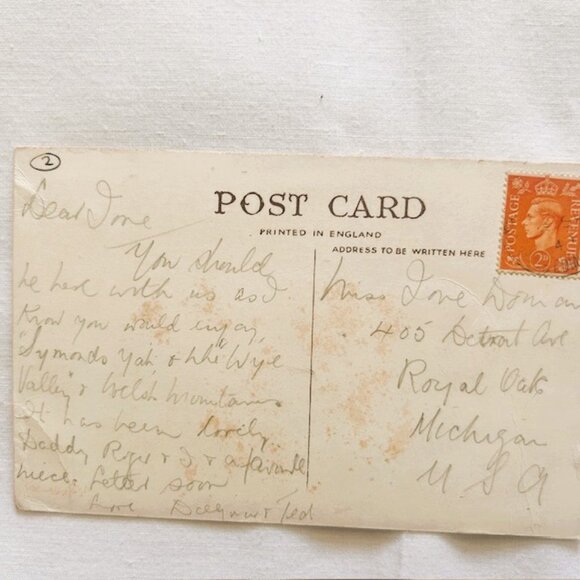 2
POST CARD
PRINTED IN ENGLAND
ADDRESS TO BE WRITTEN HERE
POSTAGE
2D
Dear Ione
You should
be here with us as I
know you would enjoy
"Symonds Yat" & the "Wye
Valley" & Welsh Mountains
It has been lovely
Daddy Roger & I & a favourite
niece. Letter soon
Love & Ted
Miss Ione
405 Detroit Ave
Royal Oak
Michigan
U S A